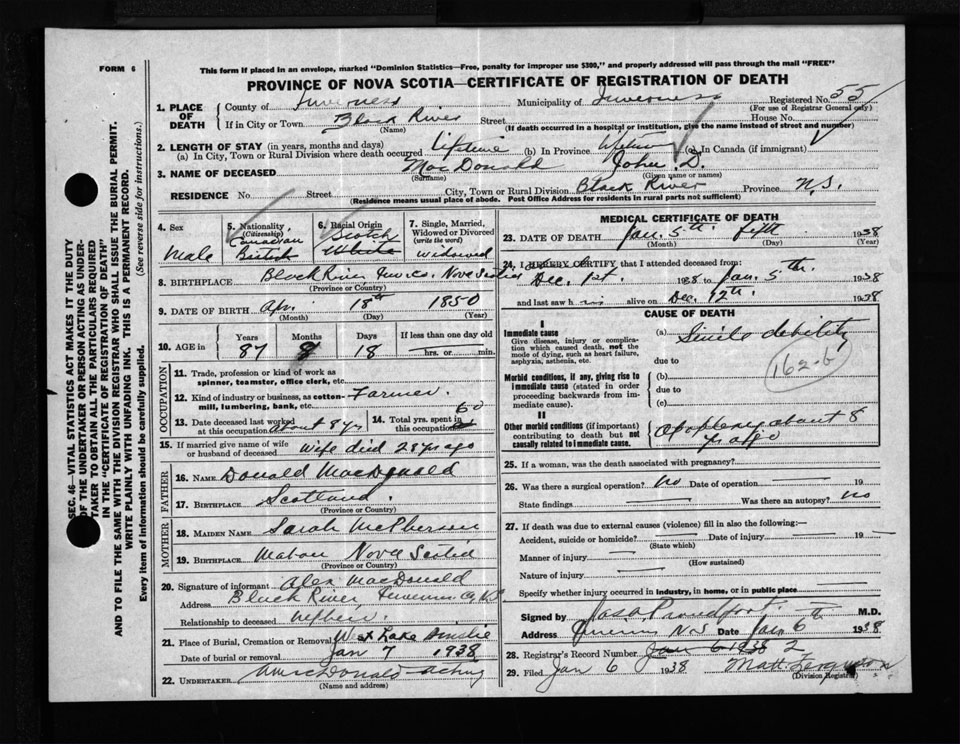 FORM 6
This form if placed in an envelope, marked "Dominion Statistics—Free, penalty for improper use $300," and properly addressed will pass through the mail "FREE"
PROVINCE OF NOVA SCOTIA—CERTIFICATE OF REGISTRATION OF DEATH
1. PLACE OF DEATH
County of Inverness Municipality of Inverness Registered No. 55
(For use of Registrar General only)
If in City or Town Black River Street House No.
(Name) (If death occurred in a hospital or institution, give the name instead of street and number)
2. LENGTH OF STAY (in years, months and days)
(a) In City, Town or Rural Division where death occurred lifetime (b) In Province lifetime (c) In Canada (if immigrant)
3. NAME OF DECEASED MacDonald John D.
(Surname) (Given name or names)
RESIDENCE No. Street City, Town or Rural Division Black River Province N.S.
(Residence means usual place of abode. Post Office Address for residents in rural parts not sufficient)
4. Sex
Male
5. Nationality (Citizenship)
Canadian
British
6. Racial Origin
Scotch
White
7. Single, Married, Widowed or Divorced (write the word)
widowed
8. BIRTHPLACE Black River Nova Scotia
(Province or Country)
9. DATE OF BIRTH Apr 18th 1850
(Month) (Day) (Year)
10. AGE in
Years Months Days If less than one day old
87 8 18 hrs. or min.
OCCUPATION
11. Trade, profession or kind of work as spinner, teamster, office clerk, etc.
12. Kind of industry or business, as cotton-mill, lumbering, bank, etc. Farmer
13. Date deceased last worked at this occupation About 8 yrs
14. Total yrs. spent in this occupation 60
15. If married give name of wife or husband of deceased Wife died 28 yrs ago
FATHER
16. NAME Donald MacDonald
17. BIRTHPLACE Scotland
(Province or Country)
MOTHER
18. MAIDEN NAME Sarah McPherson
19. BIRTHPLACE Mabou Nova Scotia
(Province or Country)
20. Signature of informant Alex MacDonald
Address Black River Inverness Co N.S.
Relationship to deceased nephew
21. Place of Burial, Cremation or Removal West Lake Ainslie
Date of burial or removal Jan 7 1938
22. UNDERTAKER MacDonald - acting
(Name and address)
MEDICAL CERTIFICATE OF DEATH
23. DATE OF DEATH Jan. 5th fifth 1938
(Month) (Day) (Year)
24. I HEREBY CERTIFY that I attended deceased from:
Dec. 1st. 1938 to Jan. 5th 1938
and last saw him alive on Dec. 12th. 1938
CAUSE OF DEATH
I
Immediate cause
Give disease, injury or complication which caused death, not the mode of dying, such as heart failure, asphyxia, asthenia, etc.
(a) Senile debility
due to
162-b
Morbid conditions, if any, giving rise to immediate cause (stated in order proceeding backwards from immediate cause).
(b)
due to
(c)
II
Other morbid conditions (if important) contributing to death but not causally related to immediate cause.
Apoplexy about 8 yrs ago
25. If a woman, was the death associated with pregnancy?
26. Was there a surgical operation? no Date of operation 19
State findings Was there an autopsy? no
27. If death was due to external causes (violence) fill in also the following:—
Accident, suicide or homicide? Date of injury 19
(State which)
Manner of injury
(How sustained)
Nature of injury
Specify whether injury occurred in industry, in home, or in public place
Signed by Jas. A. Proudfoot M.D.
Address Inverness N.S. Date Jan 6th 1938
28. Registrar's Record Number Jan 6 1938 2
29. Filed Jan 6 1938 Matt. Ferguson
(Division Registrar)
SEC. 46—VITAL STATISTICS ACT MAKES IT THE DUTY
OF THE UNDERTAKER OR PERSON ACTING AS UNDER-
TAKER TO OBTAIN ALL THE PARTICULARS REQUIRED
IN THE "CERTIFICATE OF REGISTRATION OF DEATH"
AND TO FILE THE SAME WITH THE DIVISION REGISTRAR WHO SHALL ISSUE THE BURIAL PERMIT.
WRITE PLAINLY WITH UNFADING INK. THIS IS A PERMANENT RECORD.
Every item of information should be carefully supplied. (See reverse side for instructions.)